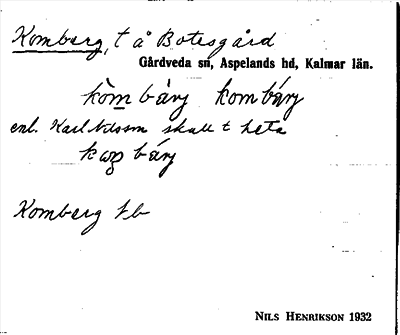 Komberg, t å Botesgård
Gårdveda sn, Aspelands hd, Kalmar län.
kòm bárj kom bárj
enl. Karl Nilsson skall t heta
bárj
Komberg tb
NILS HENRIKSON 1932